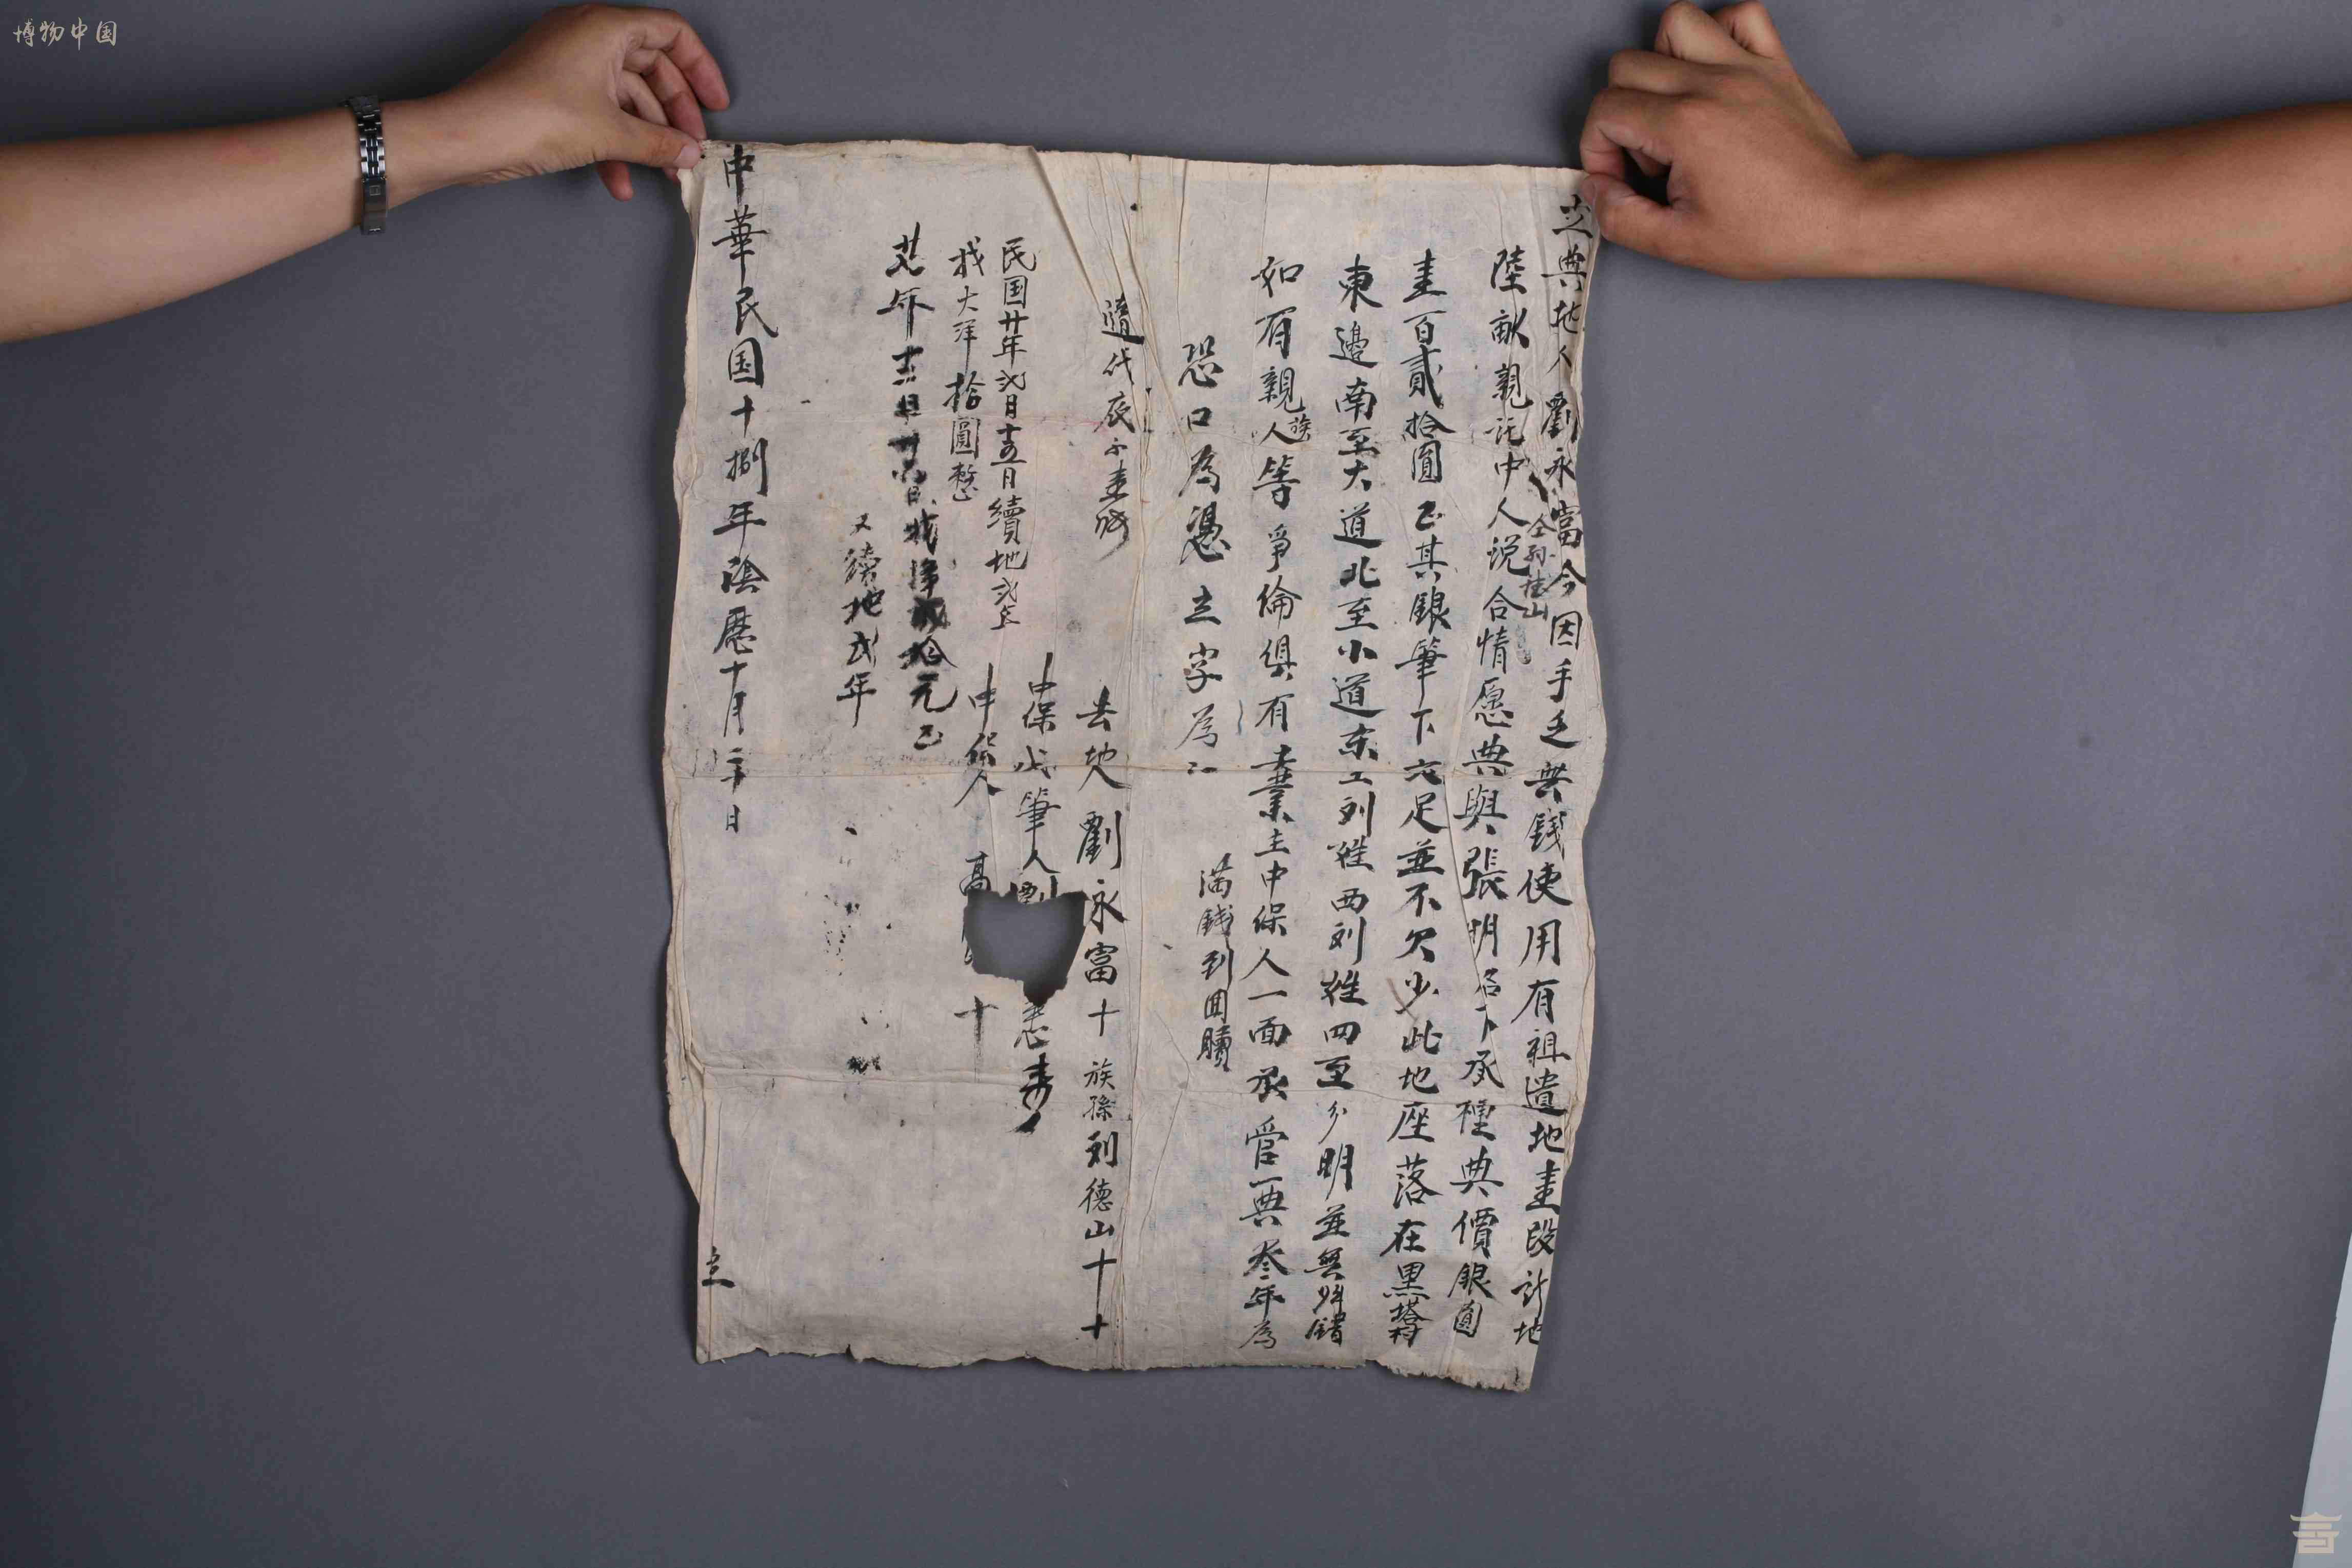 博物中国
立典地人劉永富今因手乏無錢使用有祖遺地壹段計地
仝孙德山
陸畝親託中人说合情愿典與張明名下承種典價銀圓
壹百貳拾圓正其銀筆下交足並不欠少此地座落在黑塔村
東邊南至大道北至小道东至刘姓西刘姓四至分明並無舛錯
如有親族人等爭倫俱有業主中保人一面承管典叁年為
满錢到回贖
恐口為憑立字為
隨代
去地人劉永富十 族孫刘德山十十
中保代筆人劉
中保人 高 十
民国廿年弍月十五日續地弍年
找大洋拾圓整
又續地弍年
中華民国十捌年陰歷十月二十日
立